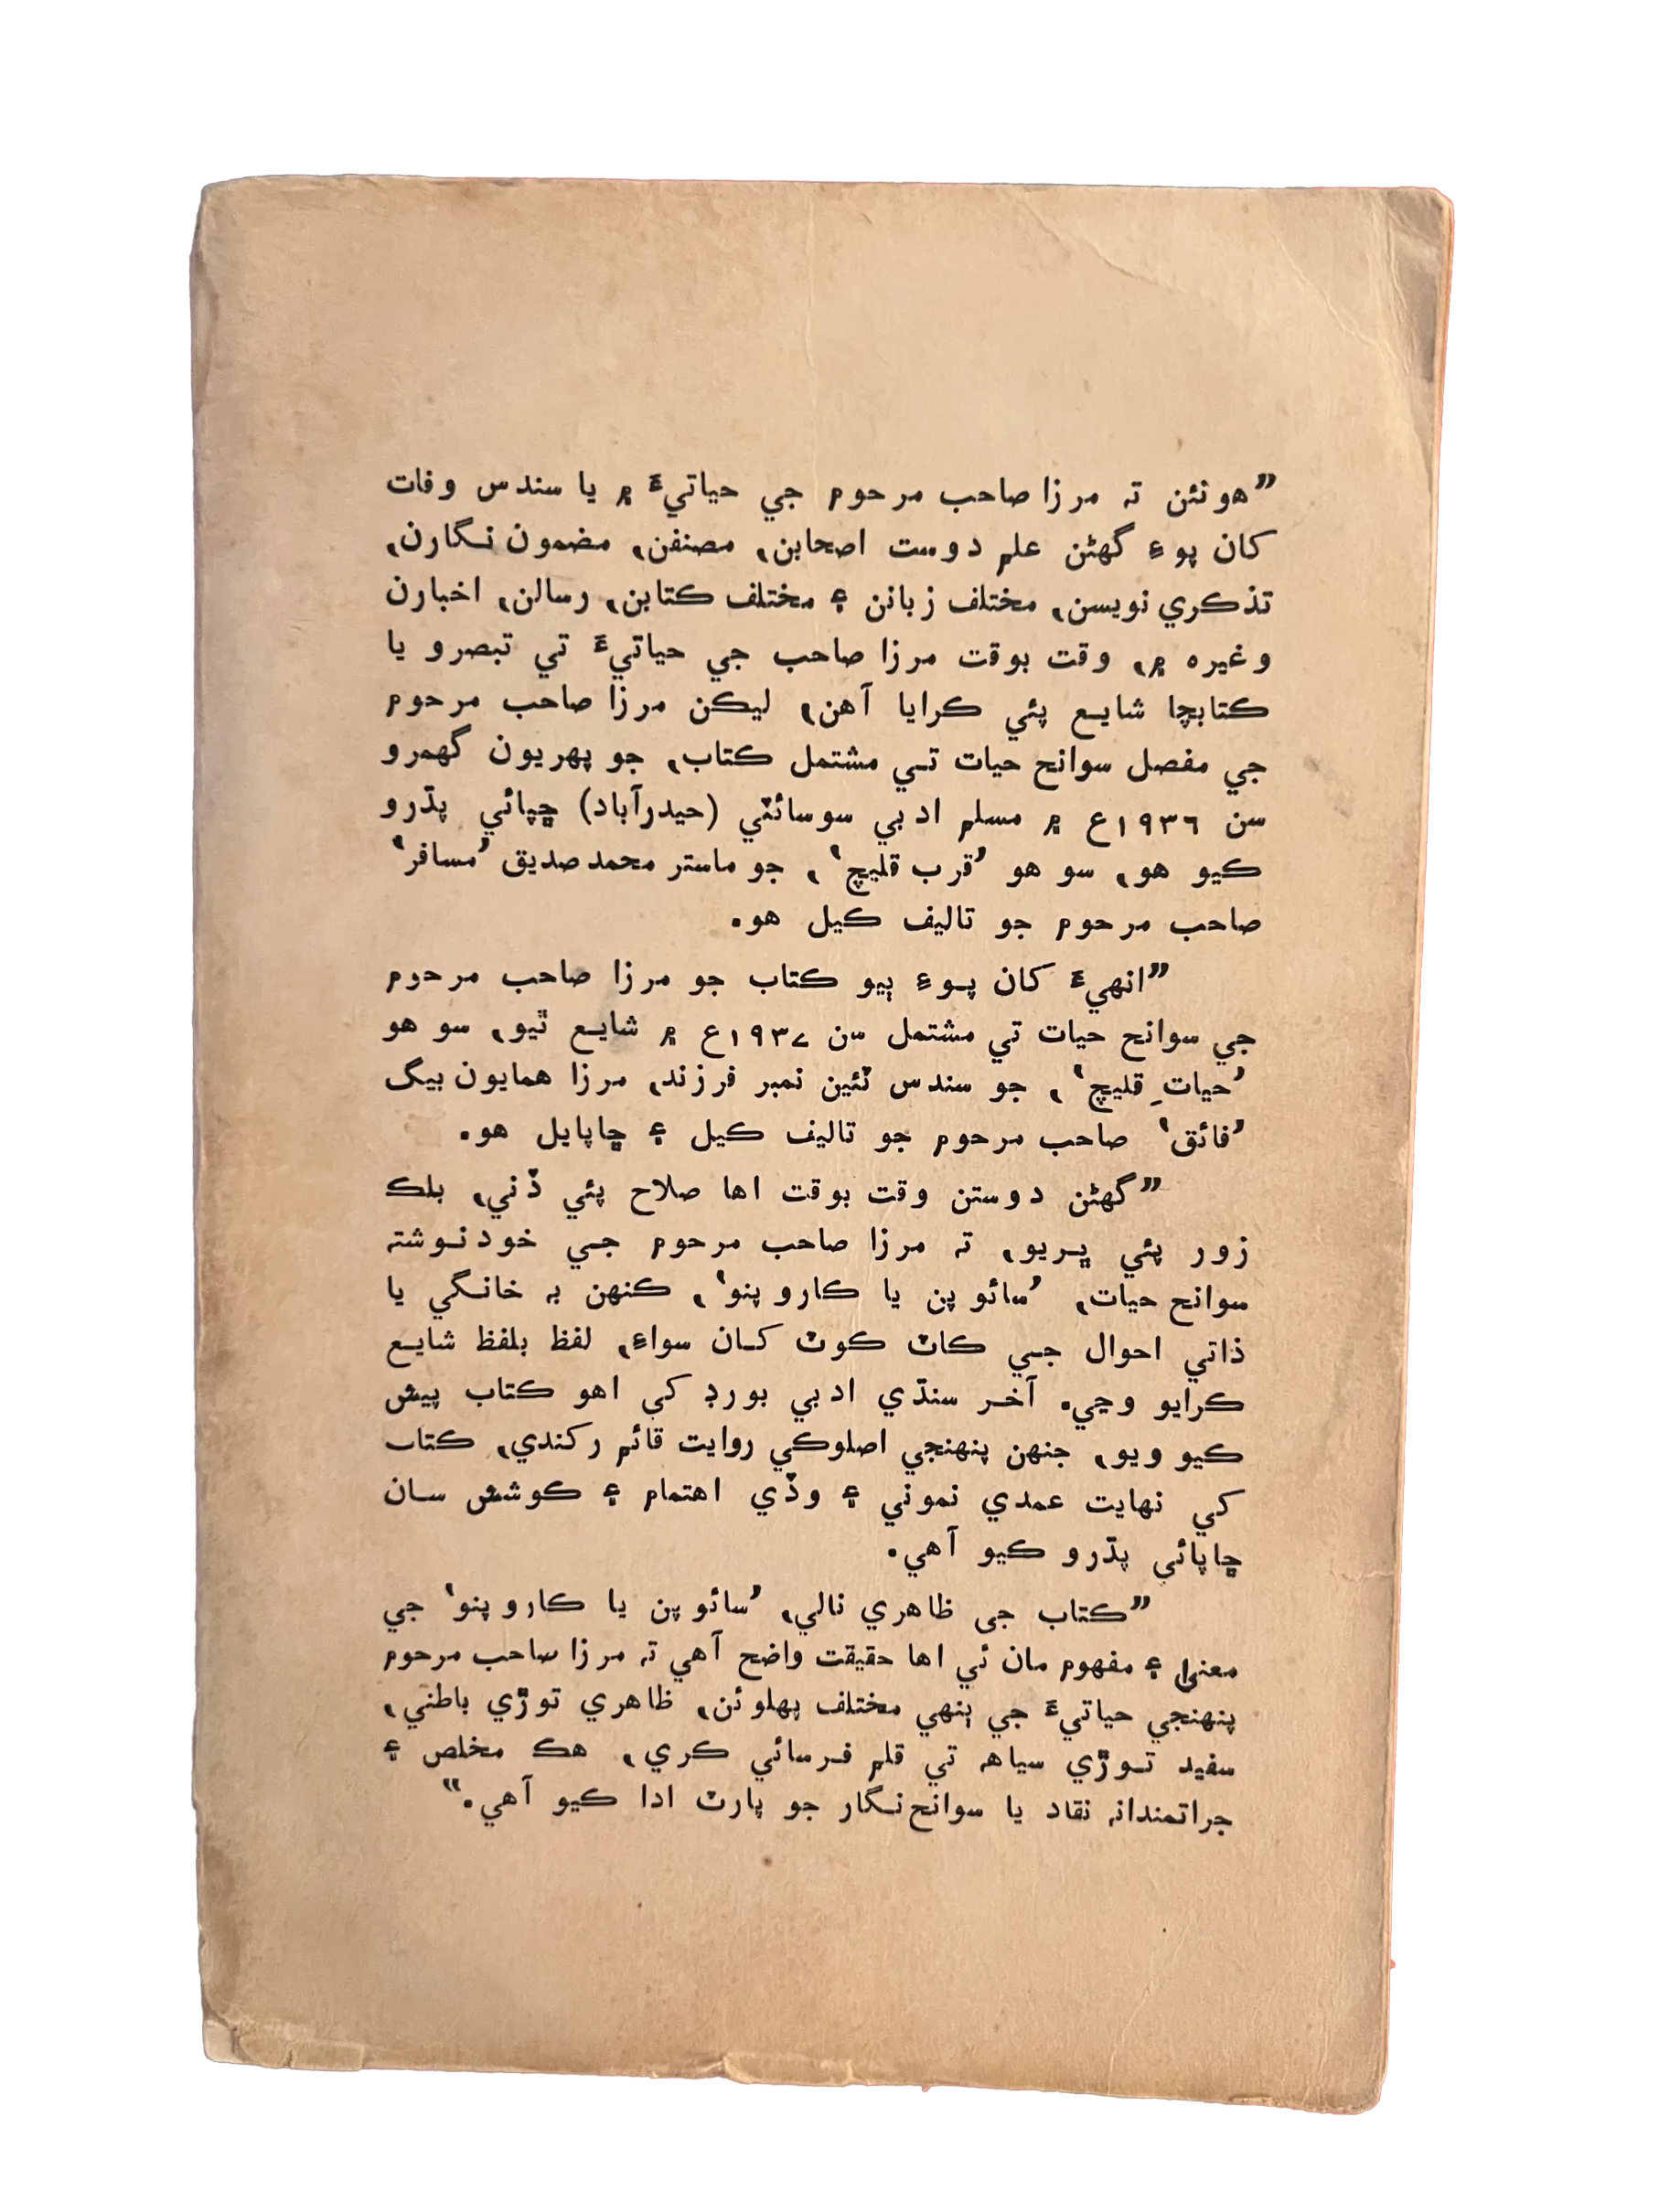 ”هونئن ته مرزا صاحب مرحوم جي حياتيءَ ۾ يا سندس وفات
کان پوءِ گهڻن علم دوست اصحابن، مصنفن، مضمون نگارن،
تذڪري نويسن، مختلف زبانن ۽ مختلف ڪتابن، رسالن، اخبارن
وغيره ۾، وقت بوقت مرزا صاحب جي حياتيءَ تي تبصرو يا
ڪتابچا شايع پئي ڪرايا آهن، ليڪن مرزا صاحب مرحوم
جي مفصل سوانح حيات تي مشتمل ڪتاب، جو پهريون گهمرو
سن ١٩٣٦ع ۾ مسلم ادبي سوسائٽي (حيدرآباد) ڇپائي پڌرو
ڪيو هو، سو هو ’قرب قليچ‘، جو ماستر محمد صديق ’مسافر‘
صاحب مرحوم جو تاليف ڪيل هو.
”انهيءَ کان پوءِ ٻيو ڪتاب جو مرزا صاحب مرحوم
جي سوانح حيات تي مشتمل سن ١٩٣٧ع ۾ شايع ٿيو، سو هو
’حياتِ قليچ‘، جو سندس ٽئين نمبر فرزند، مرزا همايون بيگ
’فائق‘ صاحب مرحوم جو تاليف ڪيل ۽ ڇاپايل هو.
”گهڻن دوستن وقت بوقت اها صلاح پئي ڏني، بلڪ
زور پئي ڀريو، ته مرزا صاحب مرحوم جي خود نوشته
سوانح حيات، ’سائو پن يا ڪارو پنو‘، ڪنهن به خانگي يا
ذاتي احوال جي ڪاٽ ڪوٽ کان سواءِ، لفظ بلفظ شايع
ڪرايو وڃي. آخر سنڌي ادبي بورڊ کي اهو ڪتاب پيش
ڪيو ويو، جنهن پنهنجي اصلوڪي روايت قائم رکندي، ڪتاب
کي نهايت عمدي نموني ۽ وڏي اهتمام ۽ ڪوشش سان
ڇاپائي پڌرو ڪيو آهي.
”ڪتاب جي ظاهري نالي، ’سائو پن يا ڪارو پنو‘ جي
معنيٰ ۽ مفهوم مان ئي اها حقيقت واضح آهي ته مرزا صاحب مرحوم
پنهنجي حياتيءَ جي ٻنهي مختلف پهلوئن، ظاهري توڙي باطني،
سفيد توڙي سياهه تي قلم فرسائي ڪري، هڪ مخلص ۽
جراتمندانه نقاد يا سوانح نگار جو پارٽ ادا ڪيو آهي.“